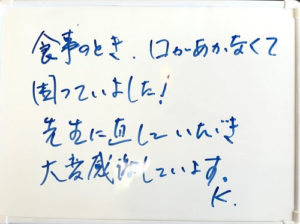 食事のとき、口があかなくて
困っていました!
先生に直していただき
大変感謝しています。
K.